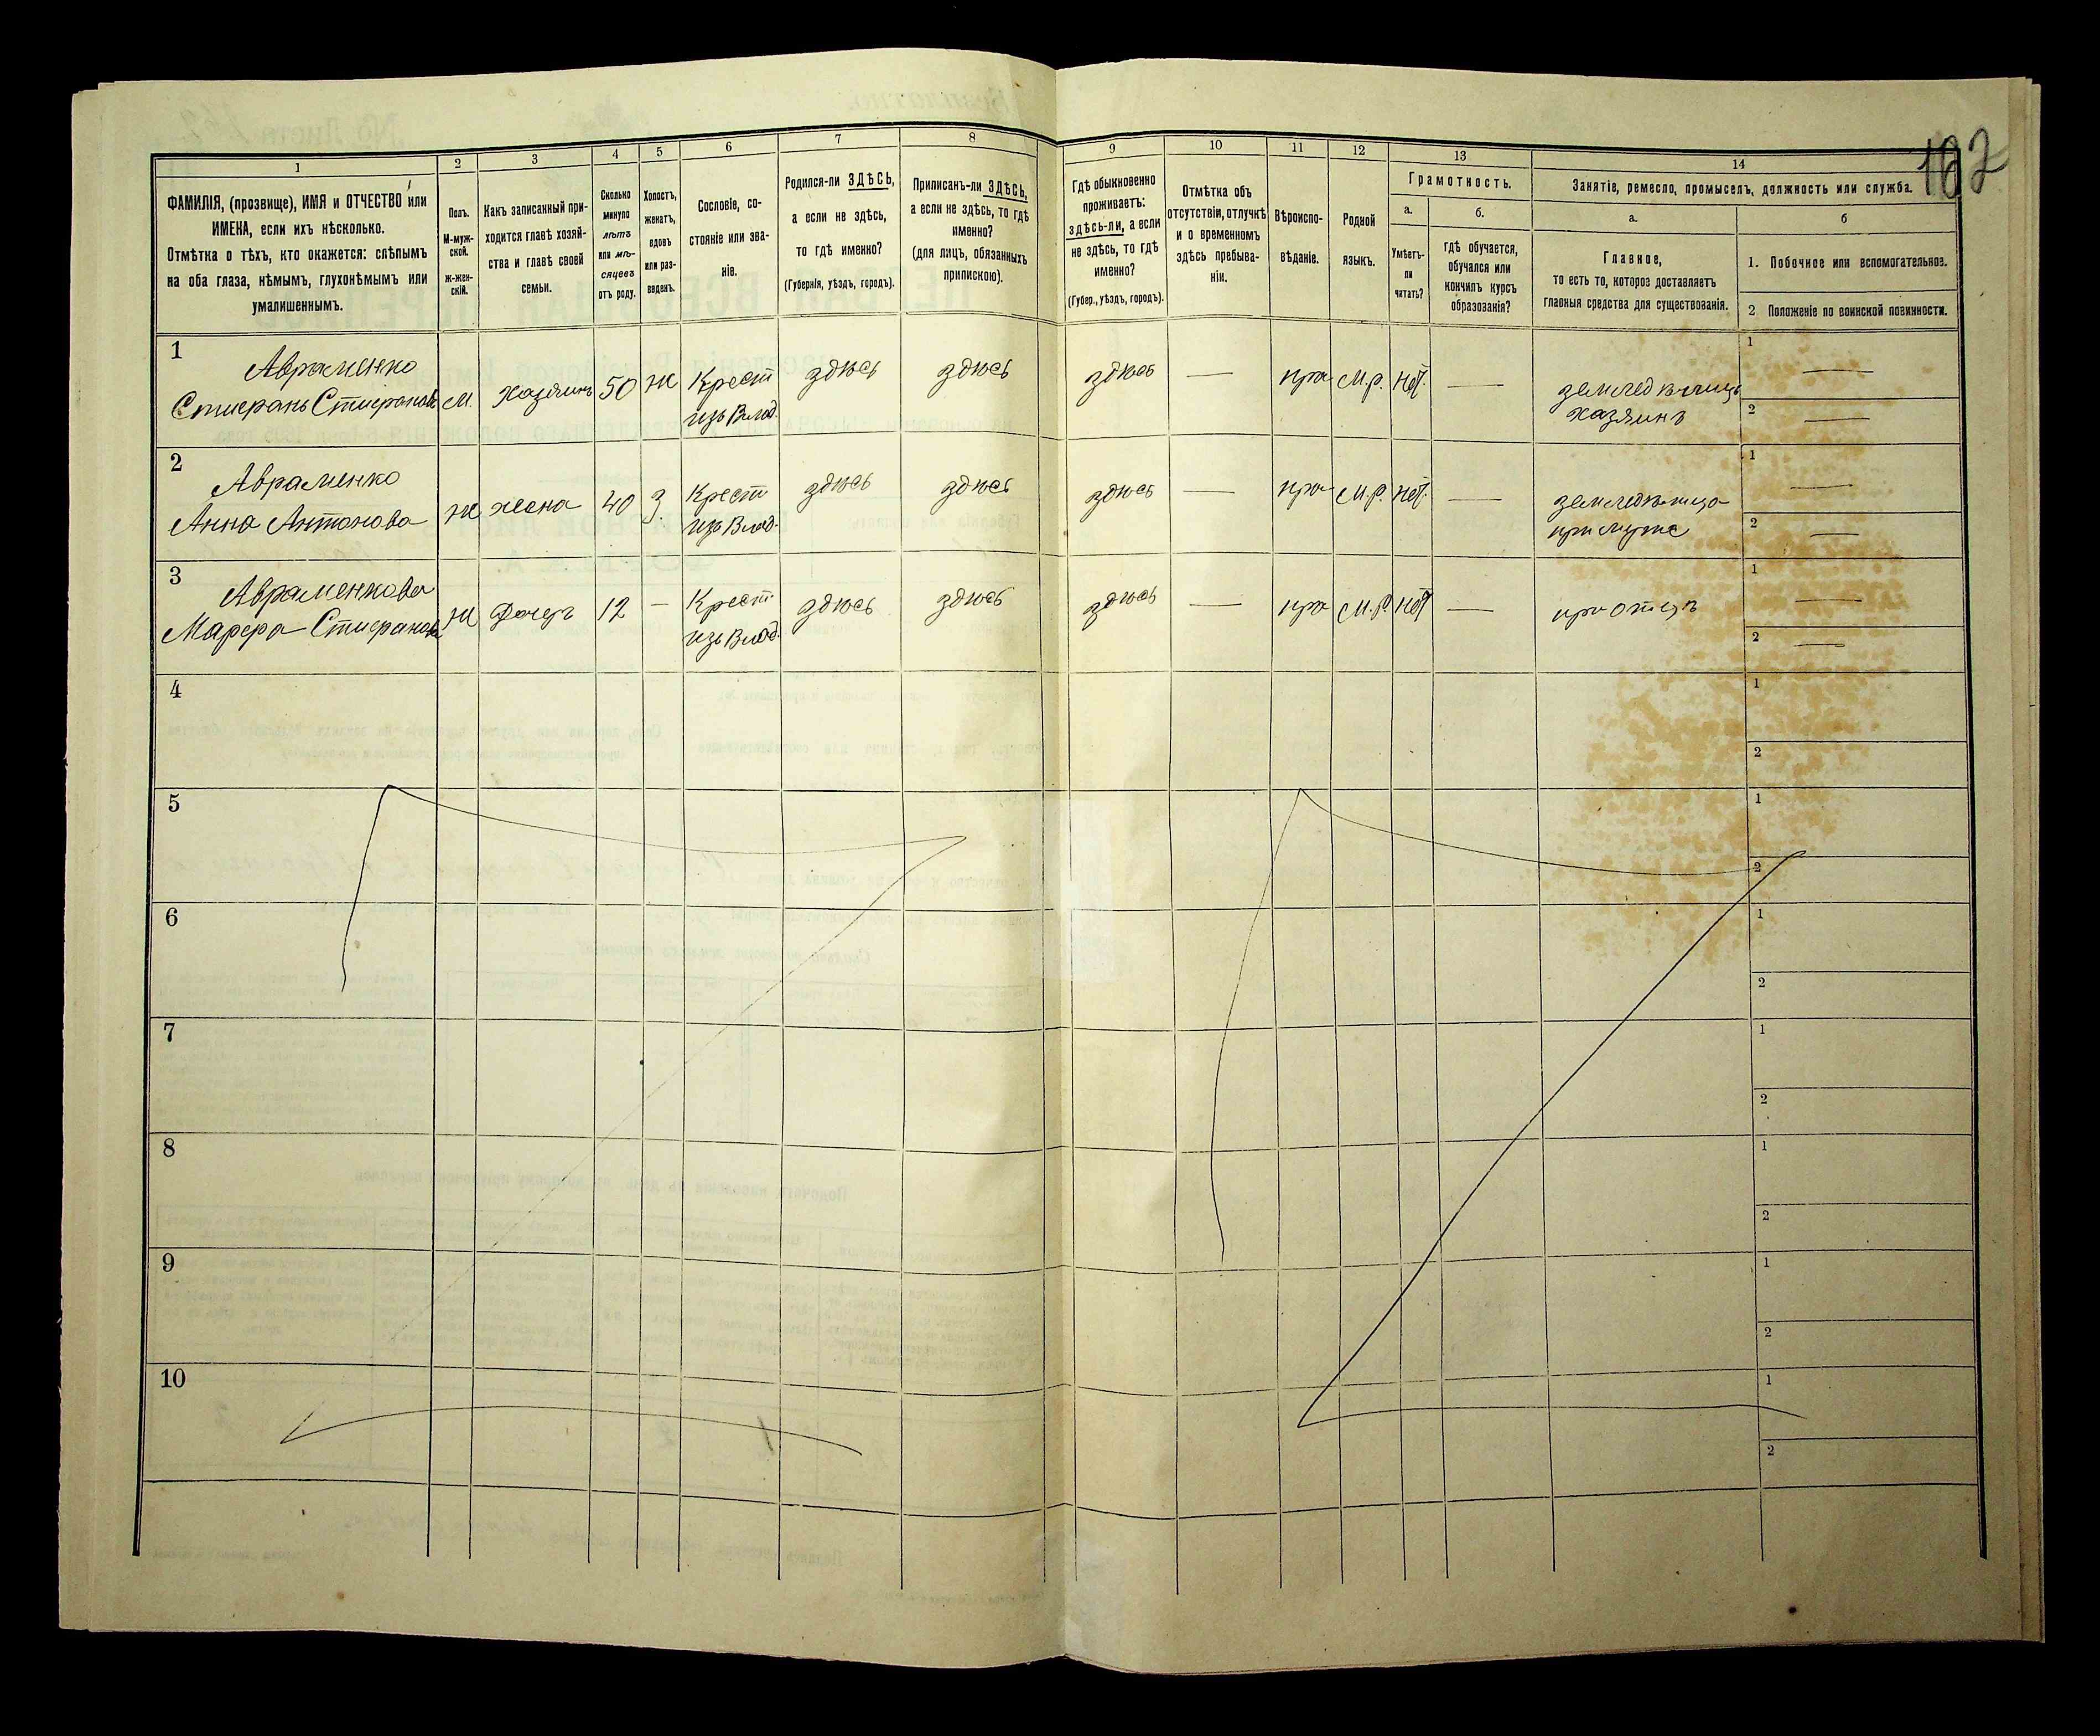 162
1
2
3
4
5
6
7
8
9
10
11
12
13
14
ФАМИЛІЯ, (прозвище), ИМЯ и ОТЧЕСТВО или
ИМЕНА, если ихъ нѣсколько.
Отмѣтка о тѣхъ, кто окажется: слѣпымъ
на оба глаза, нѣмымъ, глухонѣмымъ или
умалишеннымъ.
Полъ.
М-муж-
ской.
Ж-жен-
скій.
Какъ записанный при-
ходится главѣ хозяй-
ства и главѣ своей
семьи.
Сколько
минуло
лѣтъ
или мѣ-
сяцевъ
отъ роду.
Холостъ,
женатъ,
вдовъ
или раз-
веденъ.
Сословіе, со-
стояніе или зва-
ніе.
Родился-ли ЗДѢСЬ,
а если не здѣсь,
то гдѣ именно?
(Губернія, уѣздъ, городъ).
Приписанъ-ли ЗДѢСЬ,
а если не здѣсь, то гдѣ
именно?
(для лицъ, обязанныхъ
припискою).
Гдѣ обыкновенно
проживаетъ:
здѣсь-ли, а если
не здѣсь, то гдѣ
именно?
(Губер., уѣздъ, городъ).
Отмѣтка объ
отсутствіи, отлучкѣ
и о временномъ
здѣсь пребыва-
ніи.
Вѣроиспо-
вѣданіе.
Родной
языкъ.
Грамотность.
а.
Умѣетъ-
ли
читать?
б.
гдѣ обучается,
обучался или
кончилъ курсъ
образованія?
Занятіе, ремесло, промыселъ, должность или служба.
а.
Главное,
то есть то, которое доставляетъ
главныя средства для существованія.
б
1. Побочное или вспомогательное.
2 Положеніе по воинской повинности.
1
Авраменко
Стефанъ Стефановъ
М.
хазяинъ
50
ж
Крест
изъ Влад.
здѣсь
здѣсь
здѣсь
—
пра
М.р.
нѣт.
—
земледѣлецъ
хазяинъ
1 —
2 —
2
Авраменко
Анна Антонова
ж
жена
40
З.
Крест
изъ Влад.
здѣсь
здѣсь
здѣсь
—
пра
М.р.
нѣт.
—
земледѣлица
при мужѣ
1 —
2 —
3
Авраменкова
Марфа Стефанова
ж
дочерь
12
—
Крест
изъ Влад.
здѣсь
здѣсь
здѣсь
—
пра
М.р.
нѣт
—
при отцѣ
1 —
2 —
4
1
2
5
1
2
6
1
2
7
1
2
8
1
2
9
1
2
10
1
2